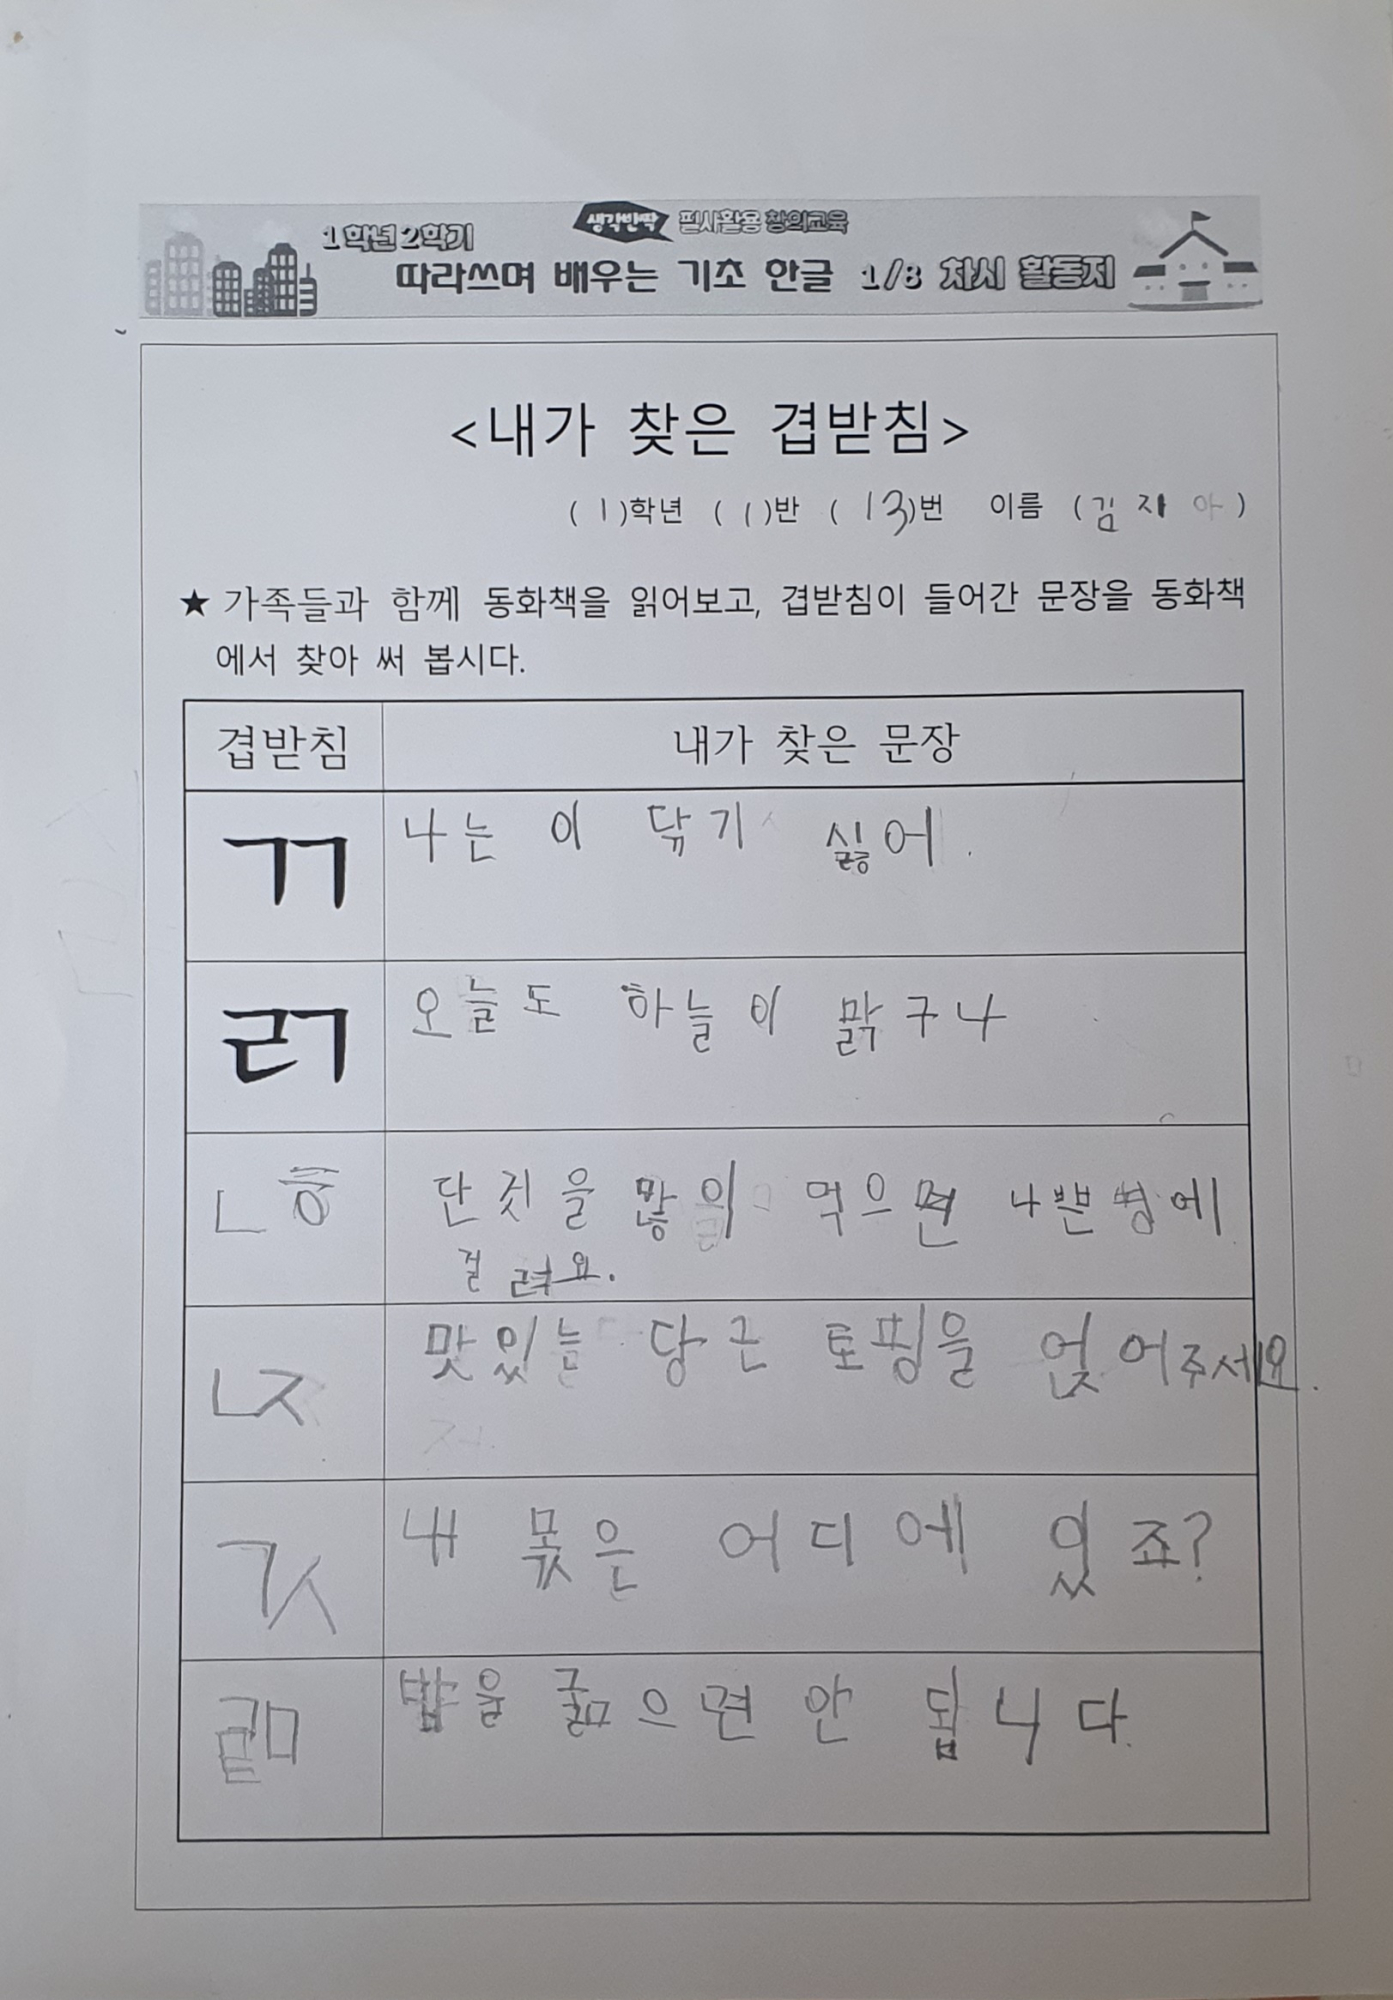 1학년 2학기
생각반짝 필사활용 창의교육
따라쓰며 배우는 기초 한글 1/8 차시 활동지
<내가 찾은 겹받침>
( 1 )학년 ( 1 )반 ( 13 )번 이름 ( 김 지 아 )
★ 가족들과 함께 동화책을 읽어보고, 겹받침이 들어간 문장을 동화책
에서 찾아 써 봅시다.
겹받침 내가 찾은 문장
ㄲ 나는 이 닦기 싫어.
ㄺ 오늘도 하늘이 맑구나
ㄶ 단것을 많이 먹으면 나쁜병에
걸려요.
ㄵ 맛있는 당근 토핑을 얹어주세요.
ㄳ 내 몫은 어디에 있죠?
ㄻ 밥을 굶으면 안 됩니다.